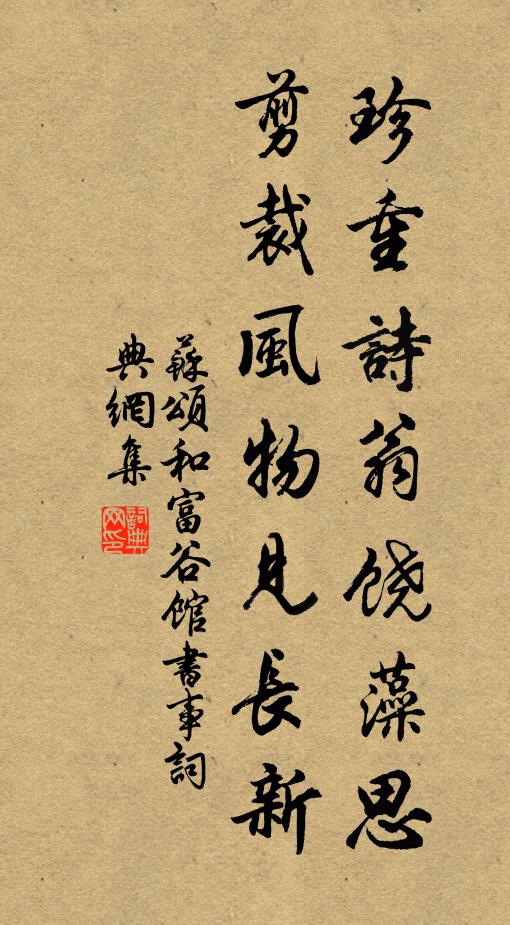 珍重詩翁饶藻思
剪裁風物見長新
蘇頌和富谷馆書事詞
典網集
詞典网印